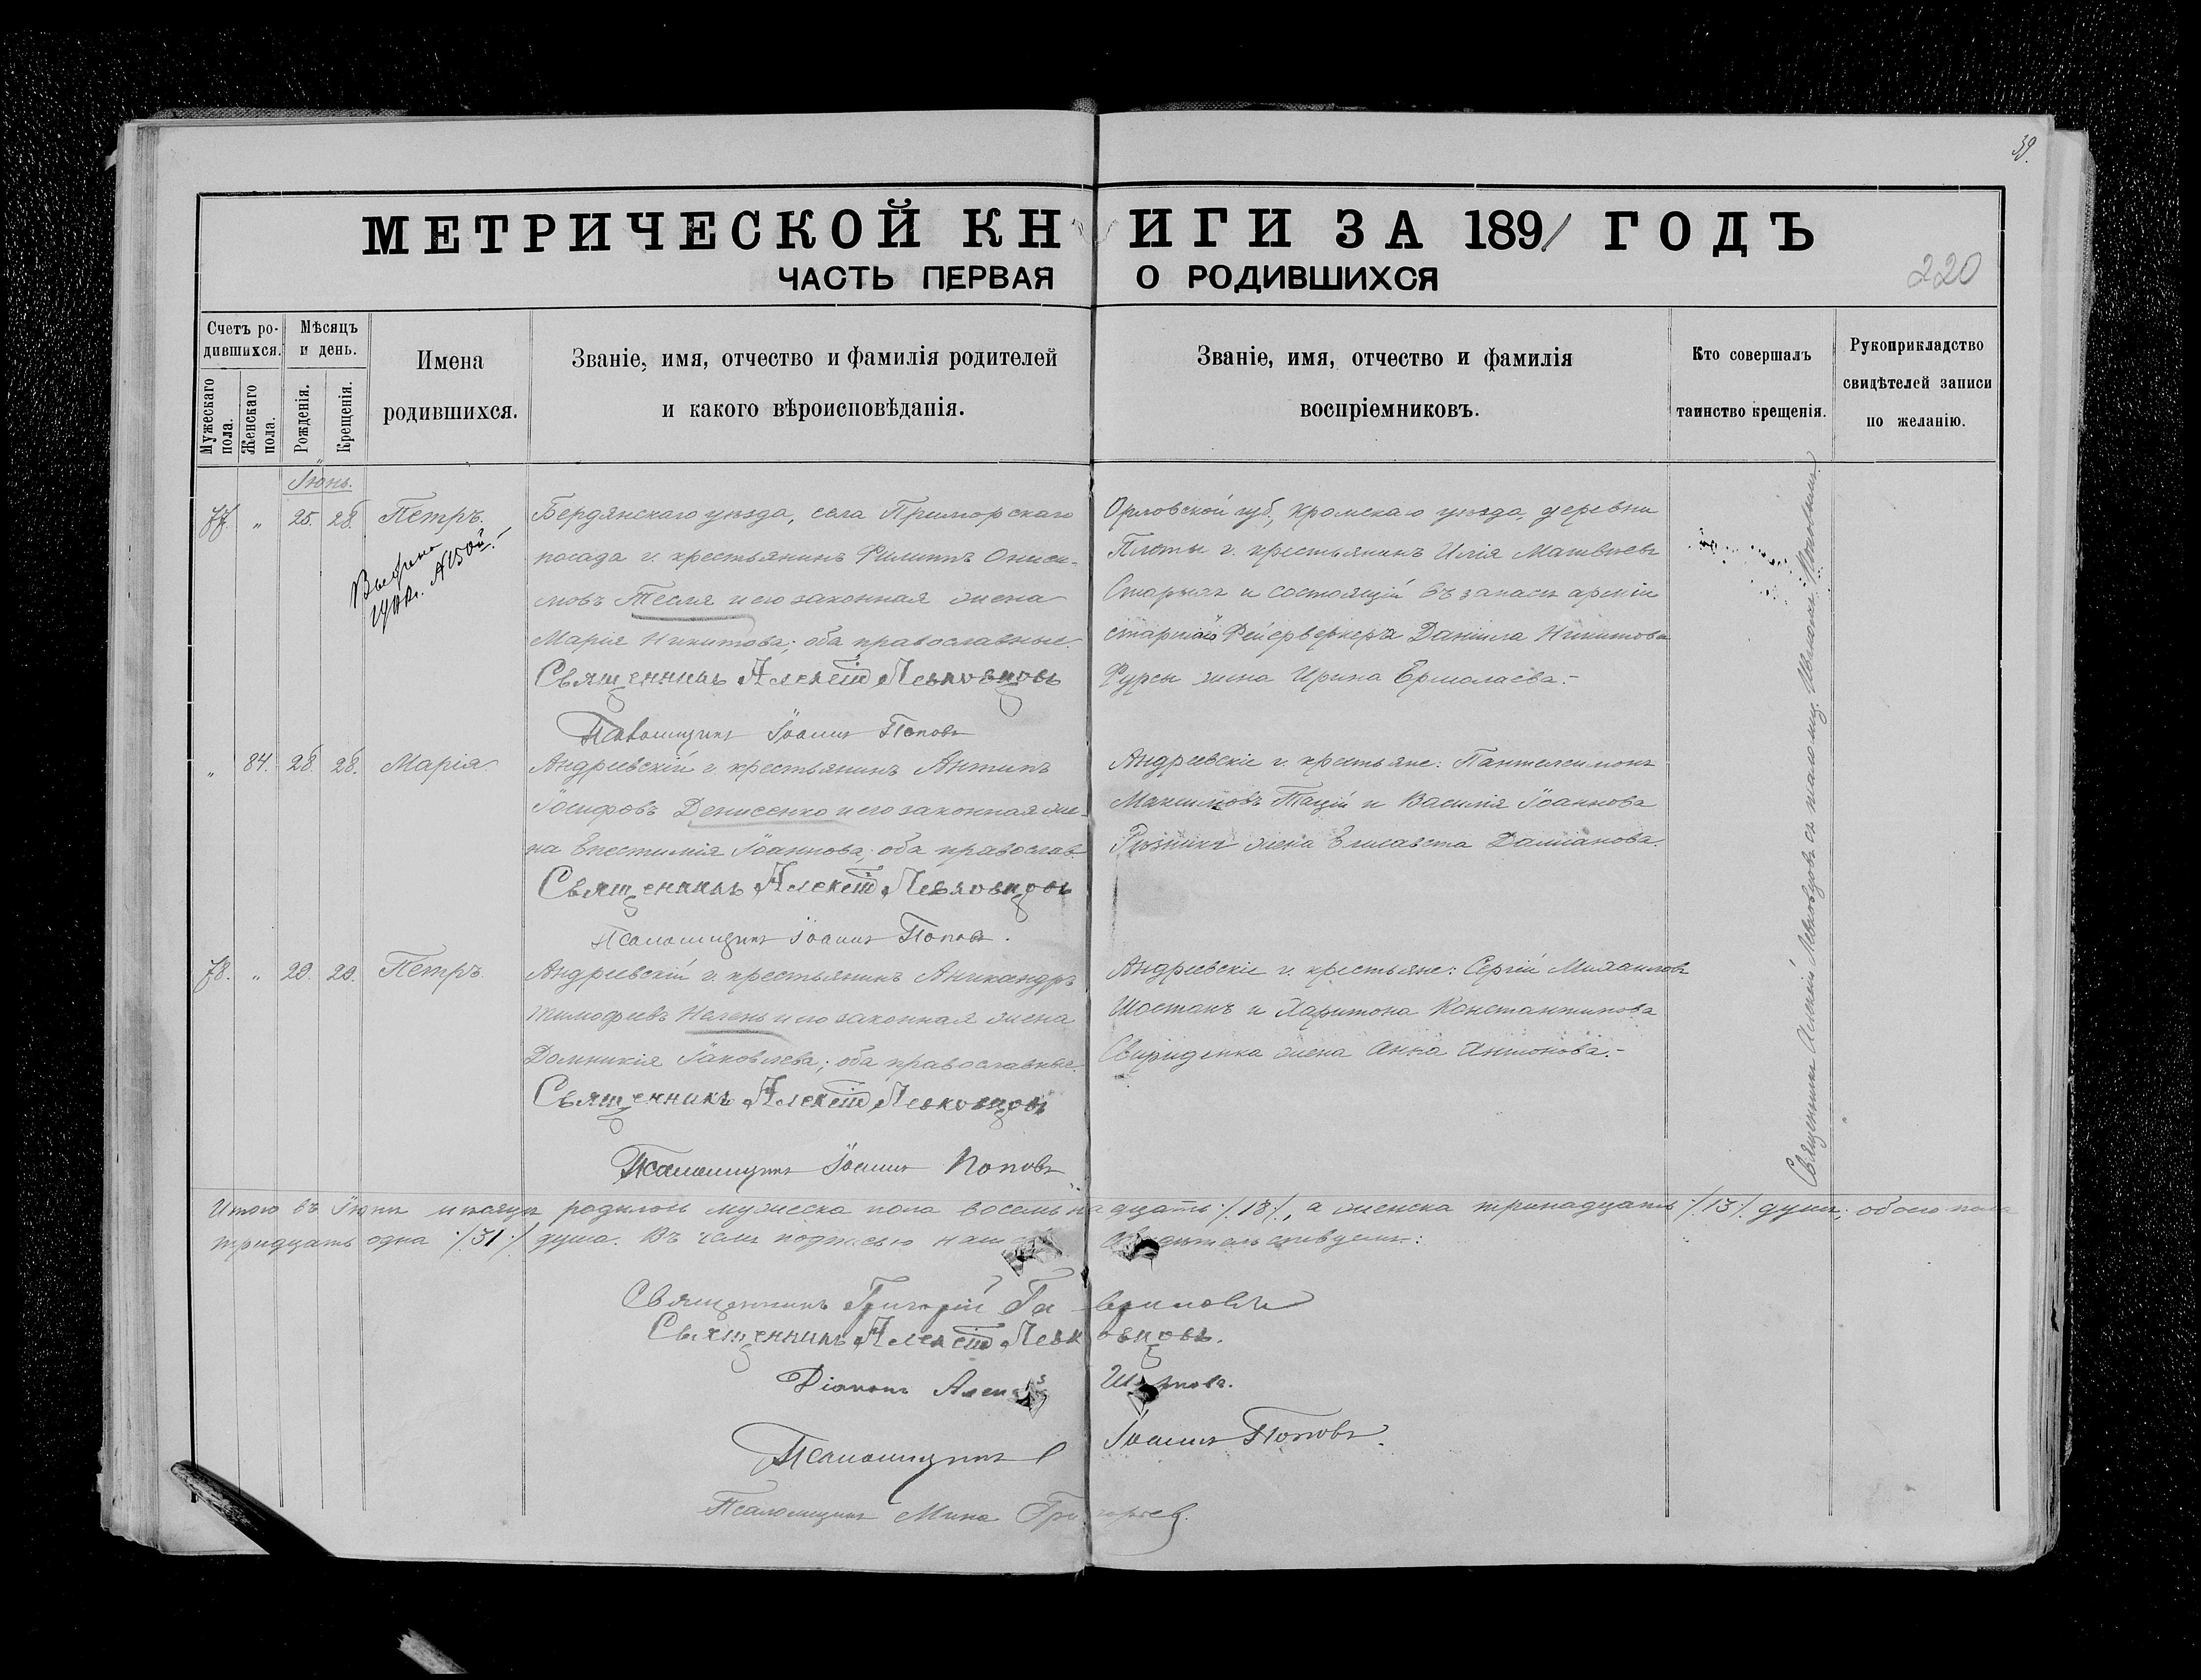 39.
МЕТРИЧЕСКОЙ КНИГИ ЗА 1891 ГОДЪ
ЧАСТЬ ПЕРВАЯ О РОДИВШИХСЯ
220
Счетъ родившихся.
Мужескаго пола.
Женскаго пола.
Мѣсяцъ и день.
Рожденія.
Крещенія.
Имена родившихся.
Званіе, имя, отчество и фамилія родителей
и какого вѣроисповѣданія.
Званіе, имя, отчество и фамилія
воспріемниковъ.
Кто совершалъ
таинство крещенія.
Рукоприкладство
свидѣтелей записи
по желанію.
Іюнь.
77. " 25. 28. Петръ.
Бердянскаго уѣзда, села Приморскаго
посада г. крестьянинъ Филиппъ Ониси-
мовъ Тесля и его законная жена
Марія Никитова; оба православные.
Священникъ Алексій Левковцовъ
Псаломщикъ Іоаннъ Поповъ
Орловской губ., Кромскаго уѣзда, деревни
Плоты г. крестьянинъ Илія Матвѣевъ
и состоящій въ запасѣ арміи
старшаго Фейерверкера Даніила Никитова
Фурсы жена Ирина Ермолаева.-
" 84. 28. 28. Марія.
Андреевскій г. крестьянинъ Антипъ
Іосифовъ Денисенко и его законная же-
на Епестимія Іоаннова; оба православ.
Священникъ Алексій Левковцовъ
Псаломщикъ Іоаннъ Поповъ.
Андреевскіе г. крестьяне: Пантелеимонъ
Максимовъ Тацій и Василія Іоаннова
Рѣзника жена Елисавета Даміанова.
78. " 29. 29. Петръ.
Андреевскій г. крестьянинъ Аникандръ
Тимофеевъ и его законная жена
Домникія Іаковлева; оба православные.
Священникъ Алексій Левковцовъ
Псаломщикъ Іоаннъ Поповъ
Андреевскіе г. крестьяне: Сергій Михаиловъ
Шостакъ и Харитона Константинова
Свириденка жена Анна Антонова.-
Священникъ Алексій Левковцовъ съ псаломщ. Іоанномъ Поповымъ.
Итого въ Іюнѣ мѣсяцѣ родилось мужеска пола восемьнадцать /.18/., а женска тринадцать /.13/. душъ; обоего пола
тридцать одна /.31./ душа. Въ чемъ подписью нашею свидѣтельствуемъ:
Священникъ Григорій Гавриловъ
Священникъ Алексій Левковцовъ.
Діаконъ
Псаломщикъ Іоаннъ Поповъ.
Псаломщикъ Мина Григорьевъ.